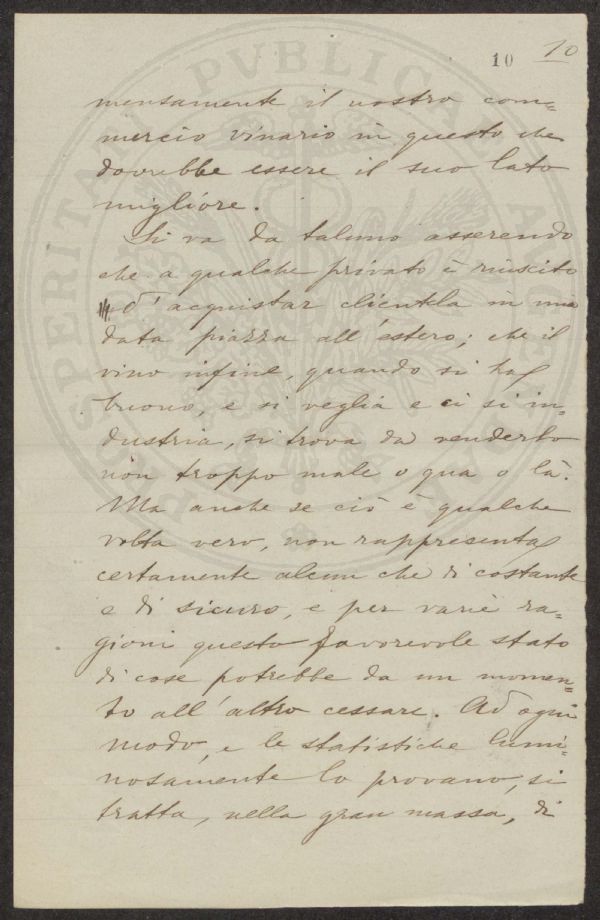 10 10
mensamente il nostro com=
mercio vinario in questo che
dovrebbe essere il suo lato
migliore.
Si va da taluno asserendo
che a qualche privato è riuscito
d'acquistar clientela in una
data piazza all'estero; che il
vino infine, quando si ha
buono, e si veglia e ci si in=
dustria, si trova da venderlo
non troppo male o qua o là.
Ma anche se ciò è qualche
volta vero, non rappresenta
certamente alcun che di costante
e di sicuro, e per varie ra=
gioni questo favorevole stato
di cose potrebbe da un momen=
to all'altro cessare. Ad ogni
modo, e le statistiche lumi=
nosamente lo provano, si
tratta, nella gran massa, di